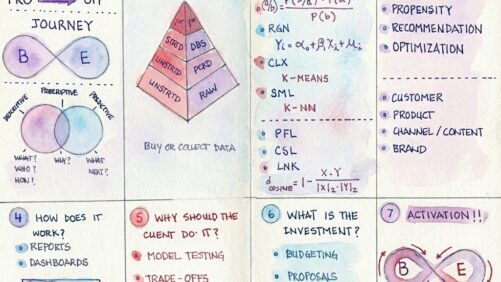 JOURNEY
B E
DESCRIPTIVE
PRESCRIPTIVE
PREDICTIVE
WHAT?
WHO?
HOW?
WHY?
WHAT
NEXT?
STRTD
DBS
UNSTRTD
PCKD
UNSTRTD
RAW
BUY OR COLLECT DATA
P(b)
RGN
Yi = α0 + βi Xi + μi
CLX
K-MEANS
SML
K-NN
PFL
CSL
LNK
d COSINE = 1 - X.Y
|X|2.|Y|2
PROPENSITY
RECOMMENDATION
OPTIMIZATION
CUSTOMER
PRODUCT
CHANNEL / CONTENT
BRAND
4 HOW DOES IT
WORK?
REPORTS
DASHBOARDS
5 WHY SHOULD THE
CLIENT DO IT?
MODEL TESTING
TRADE-OFFS
6 WHAT IS THE
INVESTMENT?
BUDGETING
PROPOSALS
7 ACTIVATION!!
B E